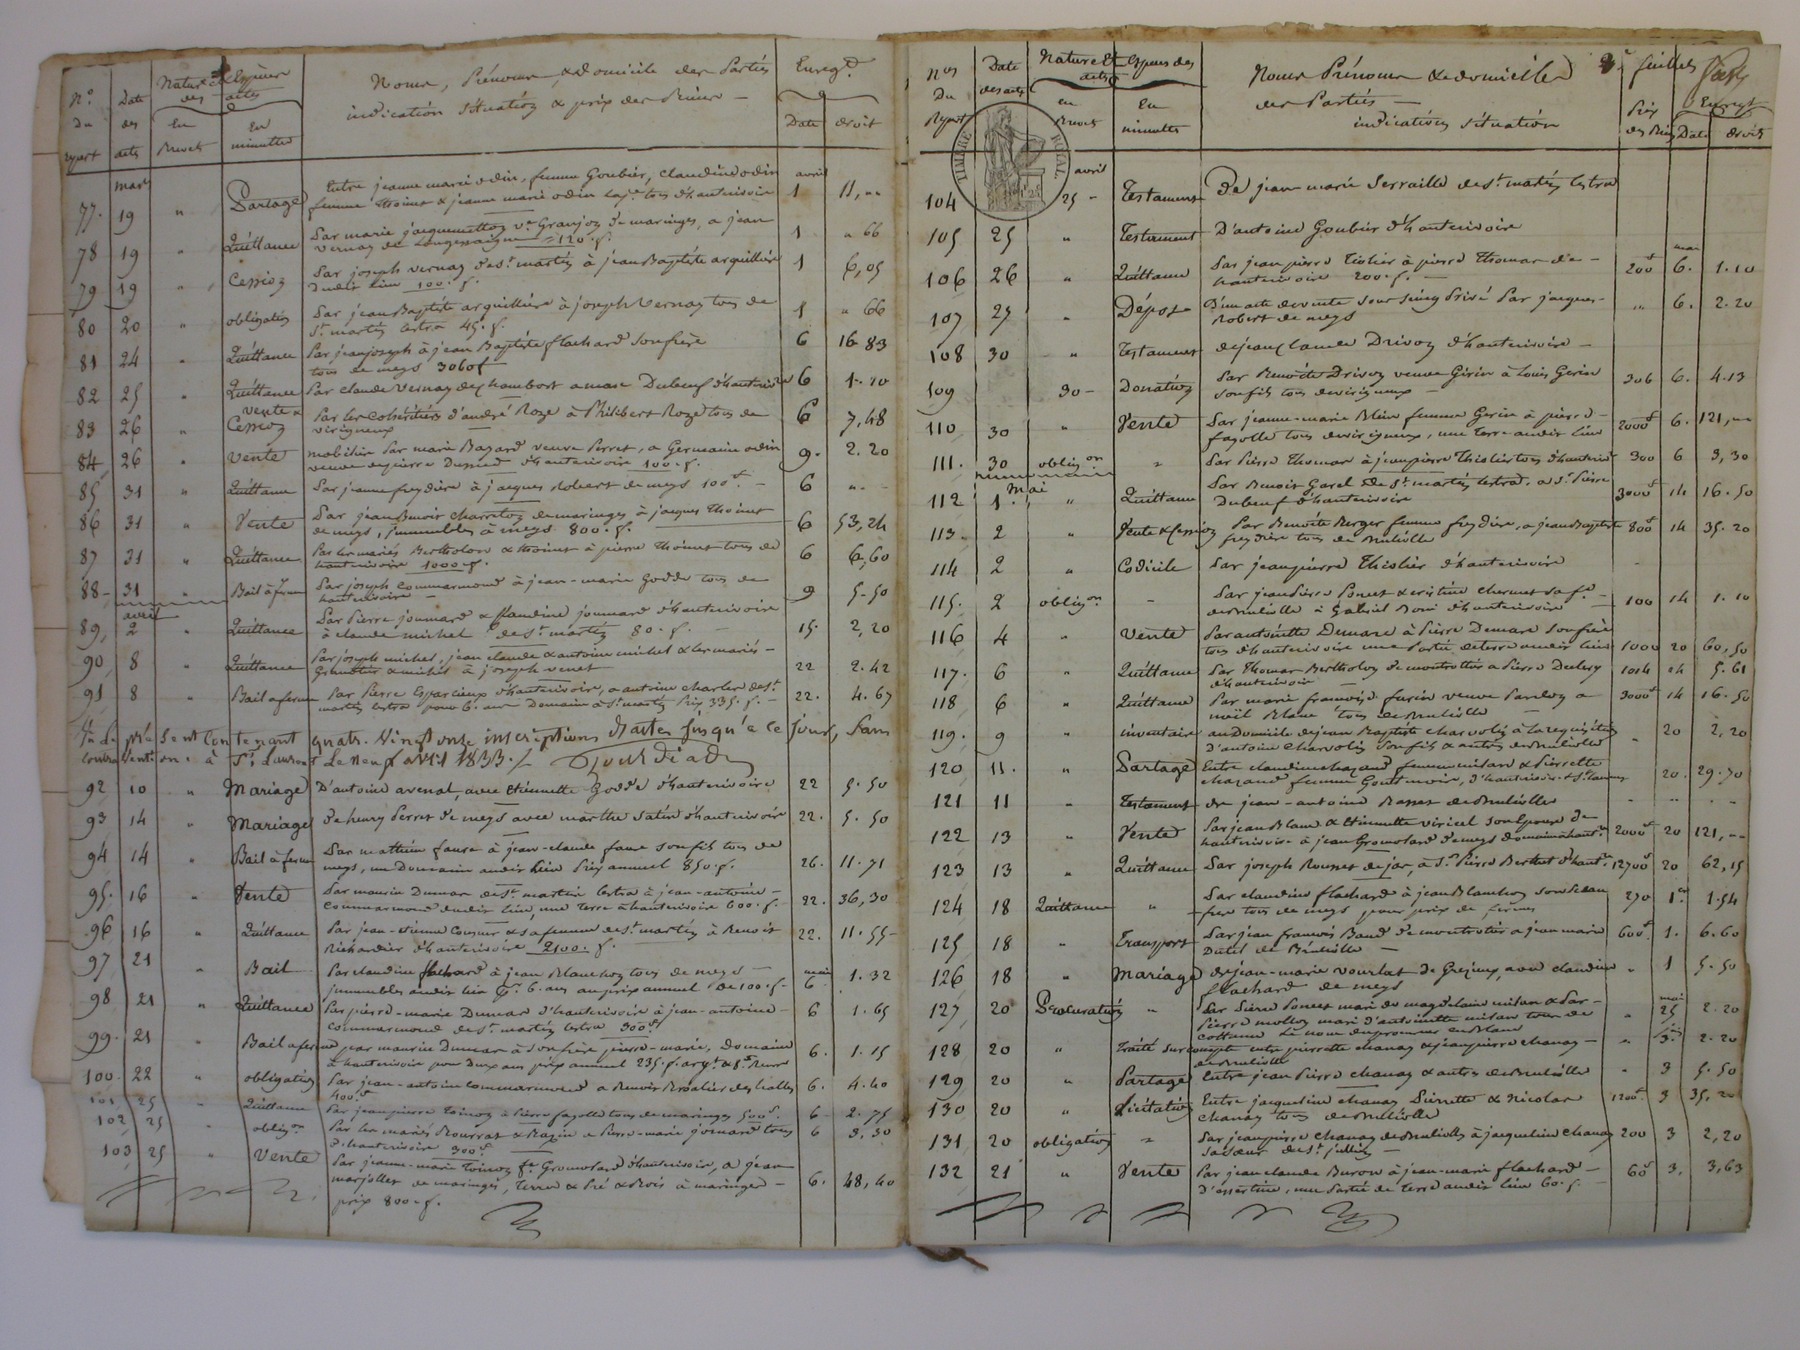 N.º du repert
Date des actes
Nature & Espèces des actes
En Brevets
En minuttes
Noms, Prénoms, & domicile des Parties
indication situation & prix des Biens —
Enreg.t
Date droit
mars avril
77. 19 " Partage Entre jeanne marie odin, femme Goubier, claudine odin
femme thoinet & jeanne marie odin tous d'hauterivoire 1 11, ""
78 19 " Quittance Par marie jacquemetton v.e Granjon de maringes, a jean
vernay de Longessaigne 120 f. 1 " 66
79 19 " Cession Par joseph vernay de St. martin à jean Baptiste arquillière
dudit lieu 100. f. 1 6,05
80 20 " obligation Par jean Baptiste arquillière à joseph Vernay tous de
St. martin lestra 45. f. 1 " 66
81 24 " Quittance Par jean joseph à jean Baptiste flachard son frère
tous de meys 3060f 6 16 83
82 25 " Quittance Par claude vernay de chambost a marc Dubeuf d'hauterivoire 6 1.10
83 26 " vente & Cession Par les cohéritiers d'andré Roze à Philibert Roze tous de
virigneux 6 7,48
84 26 " vente mobilier Par marie Bazard veuve Perret, a Germaine odin
veuve de pierre Dupied d'hauterivoire 100. f. 9. 2.20
85 31 " Quittance Par jeanne freydière à jacques Robert de meys 100 f. — 6 " "
86 31 " Vente Par jean Benoit charretton de maringes à jacques Thoinet
de meys, jmmeubles à meys 800. f. 6 53,24
87 31 " Quittance Par les mariés Bertholon & thoinet à pierre Thoinet tous de
hauterivoire 1000. f. 6 6,60
88 — 31 " Bail à ferme Par joseph Commarmond à jean-marie Godde tous de
hauterivoire — 9 5-50
avril
89, 2 " Quittance Par Pierre joumard & flaudine joumard d'hauterivoire
à claude michel de St. martin 80. f. — 15 2,20
90, 8 " Quittance Par joseph michel, jean claude & antoine michel & les mariés —
& michel à joseph venet 22 2.42
91 8 " Bail a ferme Par Pierre Esparcieux d'hauterivoire, a antoine charles de St.
martin lestra pour 6. ans Domaine à St. martin Prix 335. f. — 22. 4.67
Vu le présent contenant quatre Vingt onze inscriptions d'actes jusqu'à ce jour, Sans
contravention. à St. Laurent Le neuf avril 1833. /.
92 10 " Mariage D'antoine avenat, avec Etiennette Godde d'hauterivoire 22 5.50
93 14 " Mariage de henry Perret de meys avec marthe satin d'hauterivoire 22. 5.50
94 14 " Bail à ferme Par mathieu faure à jean-claude faure son fils tous de
meys, un Domaine audit lieu Prix annuel 850. f. 26. 11.71
95. 16 " Vente Par maurin Dumas de St. martin lestra à jean-antoine —
Commarmond dudit lieu, une Terre à hauterivoire 600. f. 22. 36,30
96 16 " Quittance Par jean-etienne Cousin & sa femme de St. martin à Benoit
Richardier d'hauterivoire 2100. f. 22. 11.55
mai
97 21 " Bail Par claudine flachard à jean Blanchon tous de meys —
jmmeubles audit lieu Pr. 6. ans au prix annuel de 100. f. 6 1.32
98 21 " Quittance Par pierre-marie Dumas d'hauterivoire à jean-antoine —
Commarmond de St. martin lestra 300 f 6 1.65
99. 21 " Bail a ferme par maurin Dumas à son frère pierre-marie, Domaine
à hauterivoire pour Deux ans prix annuel 235. f. 6. 1.15
100. 22 " obligation Par jean-antoine Commarmond a Benoit des halles
400 f 6. 4.40
101 25 " Quittance Par jean pierre Toinon à Pierre fayolle tous de maringes 500 f. 6 2.75
102 25 " oblig.on Par les mariés Bourrat & Bazin a Pierre-marie joumard tous
d'hauterivoire 300 f 6 3,30
103 25 " Vente Par jeanne-marie Toinon f.e Gromolard d'hauterivoire, a jean
marjollet de maringes, Terre & Pré & Bois à maringes —
prix 800. f. 6. 48,40
N.os Du Repert
Date des actes
Nature Et Espèces des actes
en Brevets
En minuttes
Noms Prénoms & domicile
des Parties —
indication situation
3.e feuillet
Prix des Biens
Enreg.t
Date droits
TIMBRE ROYAL
avril
104 25 — Testament De jean marie Serraille de St. martin lestra
105 25 " Testament D'antoine Goubier d'hauterivoire
mai
106 26 " Quittance Par jean pierre Tistier à pierre Thomas de —
hauterivoire 200. f. — 200 f 6. 1.10
107 29 " Dépost D'un acte de vente sous seing Privé Par jacques —
Robert de meys " 6. 2.20
108 30 " Testament de jean claude Drivon d'hauterivoire —
109 30 — Donation Par Benoite Drivon veuve Girin à Louis Gerin
son fils de virigneux — 306 6. 4.13
110 30 " Vente Par jeanne-marie Blein femme Gerin à pierre —
fayolle tous de virigneux, une Terre audit lieu 2000 f 6. 121, ""
111. 30 oblig.on " Par Pierre Thomas à jean pierre Thistier tous d'hauterivoire 300 6 3,30
Mai
112 1.er " Quittance Par Benoit Garel de St. martin lestra, a Sr. Pierre
Dubeuf d'hauterivoire 3000 f 14 16.50
113. 2 " Vente & Cession Par Benoite Berger femme freydière, a jean Baptiste
freydière tous de Brulliolle 800 f 14 35.20
114 2 " Codicile Par jean pierre Thistier d'hauterivoire —
115. 2 oblig.on — Par jean Pierre Poncet & cristine chermet sa f.e —
de Brulliolle à Gabriel Boni d'hauterivoire 100 14 1.10
116 4 " Vente Par antoinette Demare à Pierre Demare son frère
tous d'hauterivoire une Partie de terre audit lieu 1000 20 60,50
117. 6 " Quittance Par Thomas Bertholon de montrottier a Pierre
d'hauterivoire — 1014 14 5.61
118 6 " Quittance Par marie françoise furin veuve a
noël Blanc tous de Brulliolle 3000 f 14 16.50
119. 9 " inventaire au Domicile de jean Baptiste charvolin à la requisition
d'antoine charvolin son fils & autres de Brulliolle " 20 2,20
120 11. " Partage Entre claudine chazaud femme milan & Pierrette
chazaud femme Goutenoire, d'hauterivoire & 20. 29.70
121 11 " Testament de jean-antoine Basset de Brulliolle
122 13 " Vente Par jean Blanc & Etiennette viricel son Epouse de
hauterivoire à jean Gromolard de meys domaine à haut.re 2000 f 20 121, ""
123 13 " Quittance Par joseph Rousset de jas, à Sr. Pierre Berthet d'haut.re 12700 f 20 62,15
124 18 Quittance " Par claudine flachard à jean Blanchon son beau
frère tous de meys pour prix de fermes 270 1.er 1.54
125 18 " Transport Par jean francois Baud de montrotier a jean marie
Dutel de Brulliolle — 600 f. 1. 6.60
126 18 " Mariage de jean-marie vourlat de Grezieux, avec claudine
flachard de meys " 1 5.50
127 20 Procuration " Par Pierre Poncet mari de magdelaine milan & Par —
Pierre mollon mari d'antoinette milan tous de
cottance Le nom du procureur en Blanc " mai 25 2.20
128 20 " Traité sur compte entre pierrette chanay & jean pierre chanay —
de Brulliolle " 3. 2.20
129 20 " Partage Entre jean Pierre chanay & autres de Brulliolle " 3 5.50
130 20 " Licitation Entre jacqueline chanay Pierrette & Nicolas
chanay tous de Brulliolle 1200 f 3 35,20
131 20 obligation " Par jean pierre chanay de Brulliolle à jacqueline chanay
sa sœur de St. jullien — 200 3 2,20
132 21 " Vente Par jean claude Buron à jean-marie flachard —
D'essertine, une Partie de Terre audit lieu 60. f. 60 f 3. 3,63